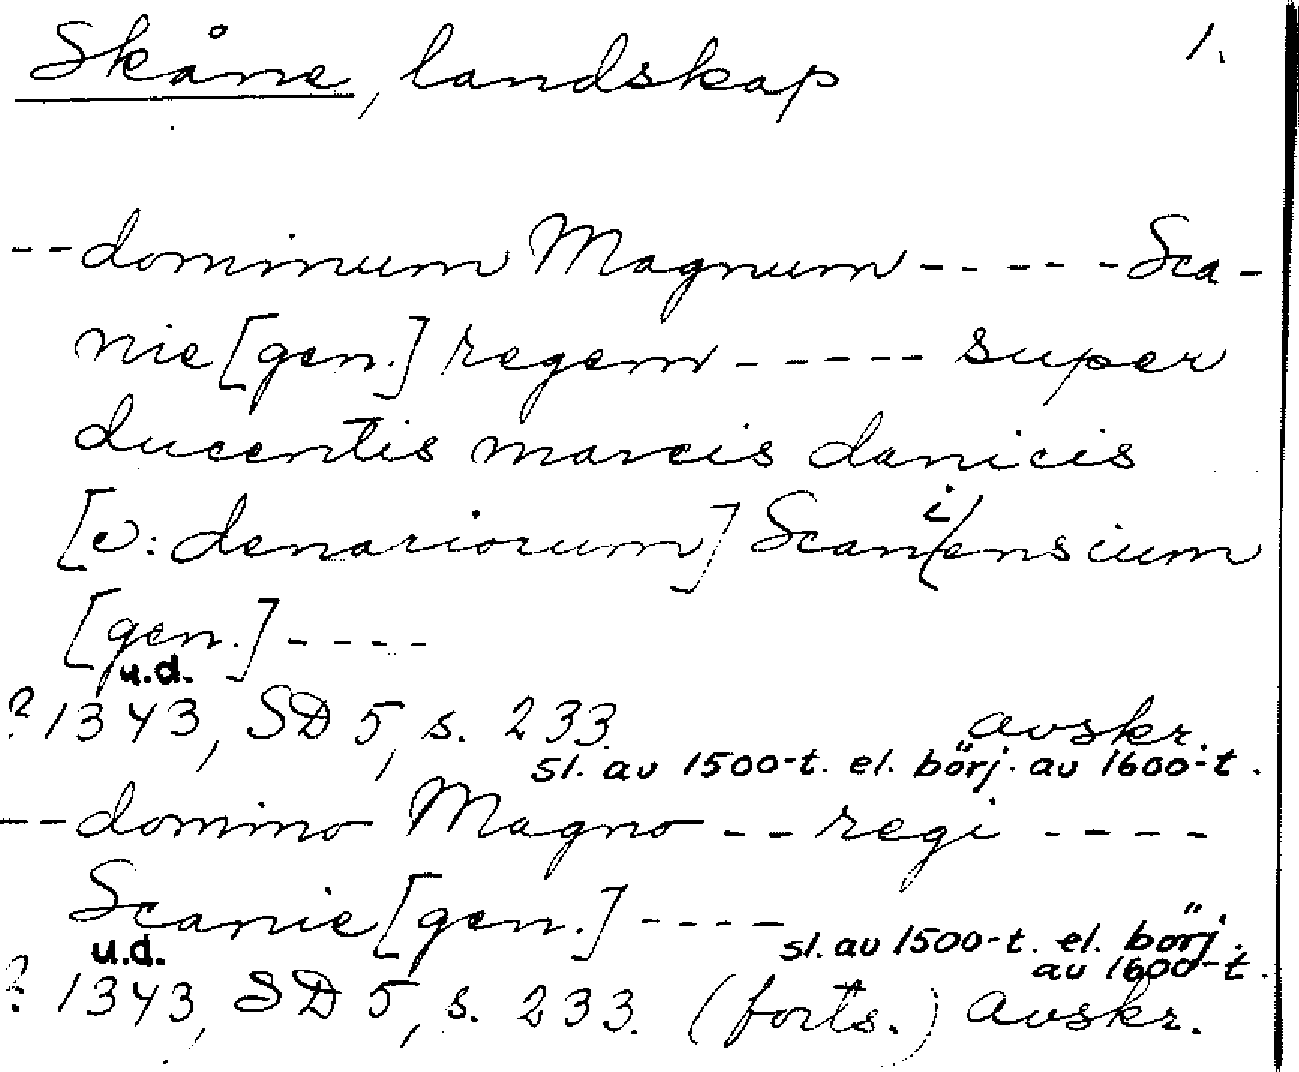 Skåne, landskap 1.
--dominum Magnum-----Sca-
nie [gen.] regem ----- super
ducentis marcis danicis
[ɔ: denariorum] Scan i/ensium
[gen.]----
u.d.
? 1343, SD 5, s. 233. avskr.
sl. av 1500-t. el. börj. av 1600-t.
--domino Magno -- regi ----
Scanie [gen.] ----
sl. av 1500-t. el. börj.
u.d. av 1600-t.
? 1343, SD 5, s. 233. (forts.) avskr.